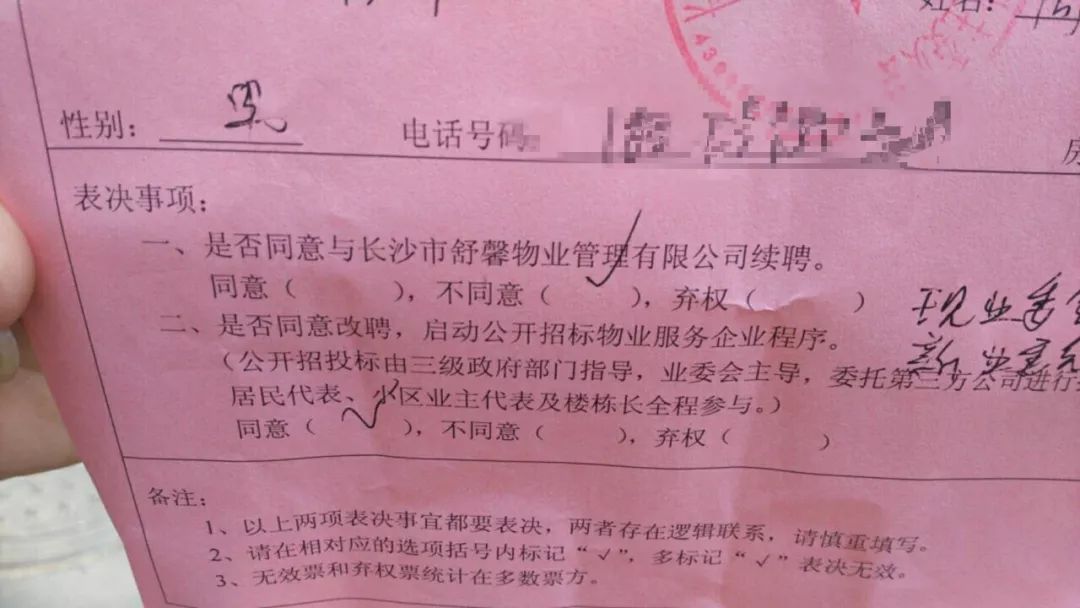 姓名：
性别： 男 电话号码
房
表决事项：
一、是否同意与长沙市舒馨物业管理有限公司续聘。
同意（ ），不同意（ √ ），弃权（ ）
二、是否同意改聘，启动公开招标物业服务企业程序。
（公开招投标由三级政府部门指导，业委会主导，委托第三方公司进行
居民代表、小区业主代表及楼栋长全程参与。）
同意（ √ ），不同意（ ），弃权（ ）
备注：
1、以上两项表决事宜都要表决，两者存在逻辑联系，请慎重填写。
2、请在相对应的选项括号内标记“√”，多标记“√”表决无效。
3、无效票和弃权票统计在多数票方。